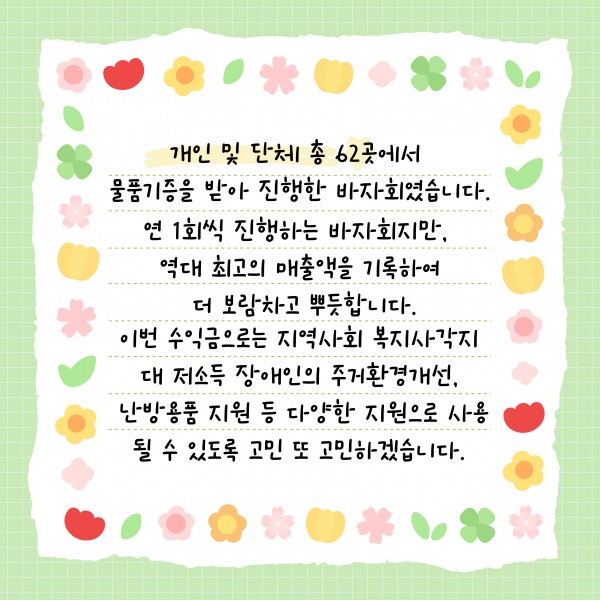 개인 및 단체 총 62곳에서
물품기증을 받아 진행한 바자회였습니다.
연 1회씩 진행하는 바자회지만,
역대 최고의 매출액을 기록하여
더 보람차고 뿌듯합니다.
이번 수익금으로는 지역사회 복지사각지
대 저소득 장애인의 주거환경개선,
난방용품 지원 등 다양한 지원으로 사용
될 수 있도록 고민 또 고민하겠습니다.